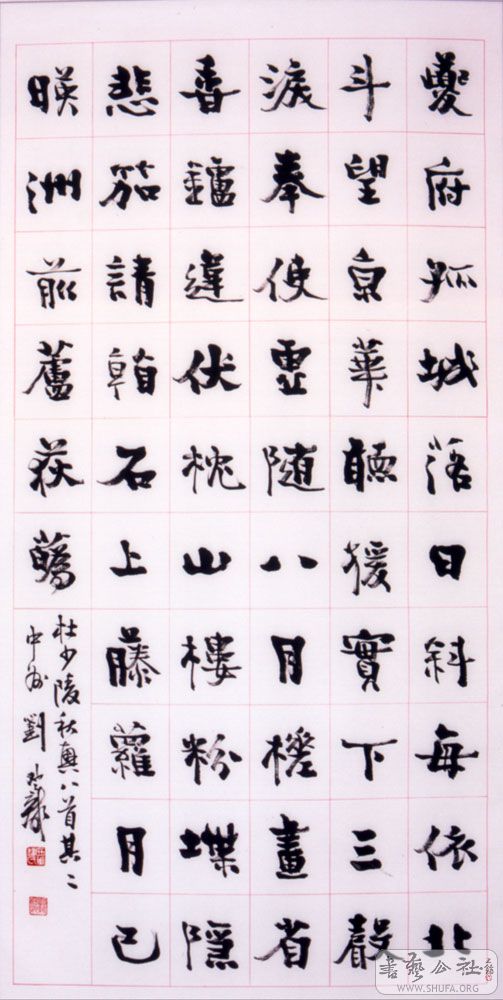 夔府孤城落日斜每依北
斗望京華聽猨實下三聲
淚奉使虛随八月槎畫省
香鑪違伏枕山樓粉堞隱
悲笳請看石上藤蘿月已
暎洲前蘆荻蘤
杜少陵秋興八首其二
中州劉
書藝公社
WWW.SHUFA.ORG